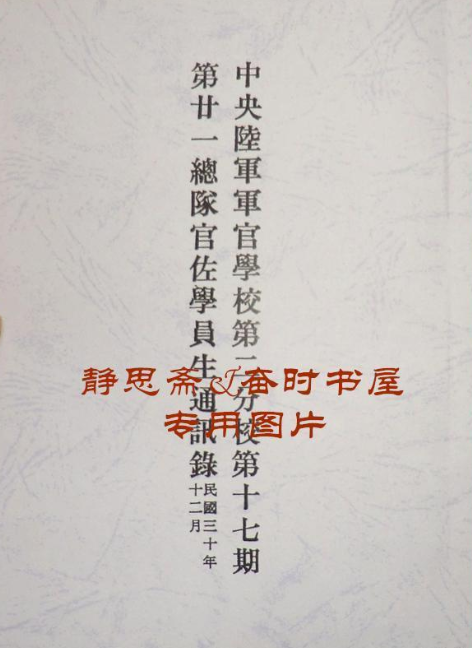 中央陸軍軍官學校第二分校第十七期
第廿一總隊官佐學員生通訊錄
民國三十年
十二月
静思斋&奋时书屋
专用图片